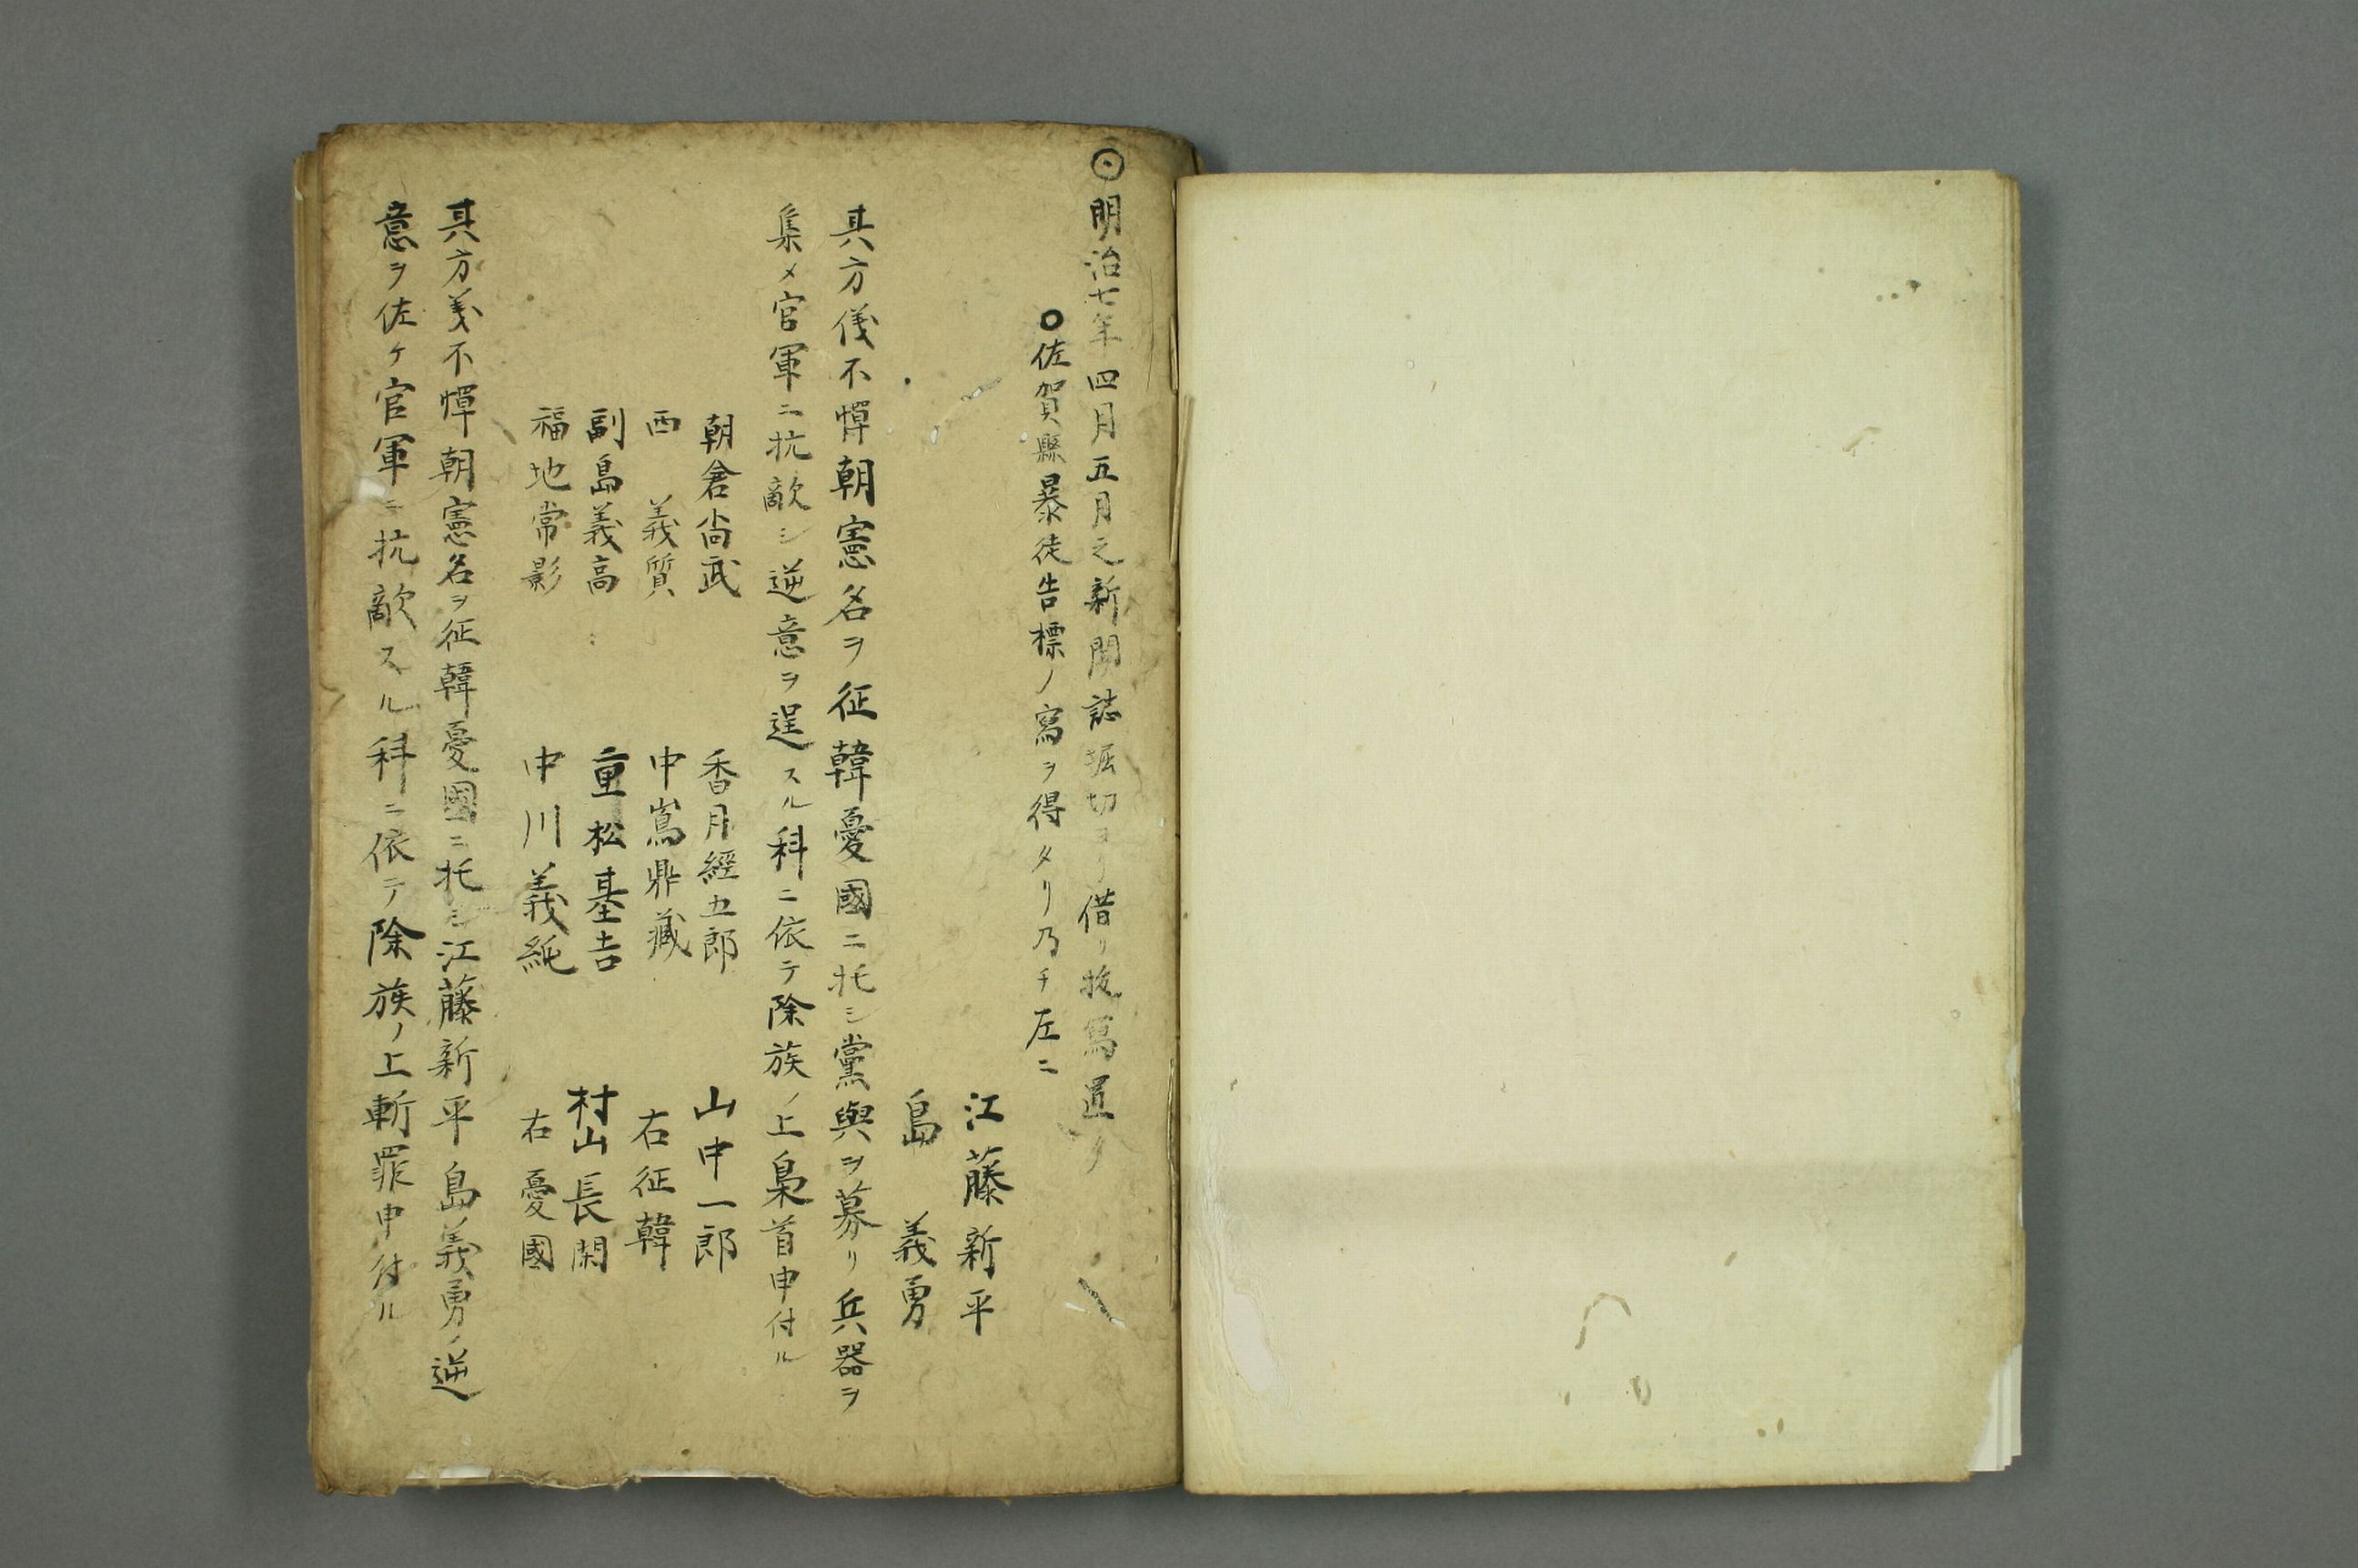 ◉明治七年四月五月之新聞誌堀切ヨリ借リ抜写置タ
○佐賀縣暴徒告標ノ寫ヲ得タリ乃チ左ニ
江藤新平
島義勇
其方儀不憚朝憲名ヲ征韓憂國ニ托シ黨與ヲ募リ兵器ヲ
集メ官軍ニ抗敵シ逆意ヲ逞スル科ニ依テ除族ノ上梟首申付ル
朝倉尚武 香月經五郎 山中一郎
西義質 中嶌鼎藏 右征韓
副島義高 重松基吉 村山長閑
福地常影 中川義純 右憂國
其方義不憚朝憲名ヲ征韓憂國ニ托シ江藤新平島義勇ノ逆
意ヲ佐ケ官軍ニ抗敵スル科ニ依テ除族ノ上斬罪申付ル